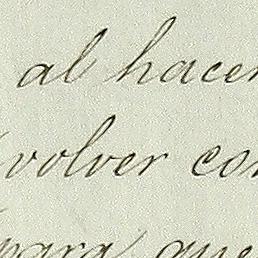 al hacer
volver con
para que